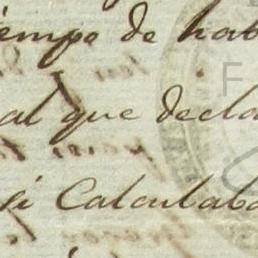 iempo de hab
al que decla
si Calculaba
F